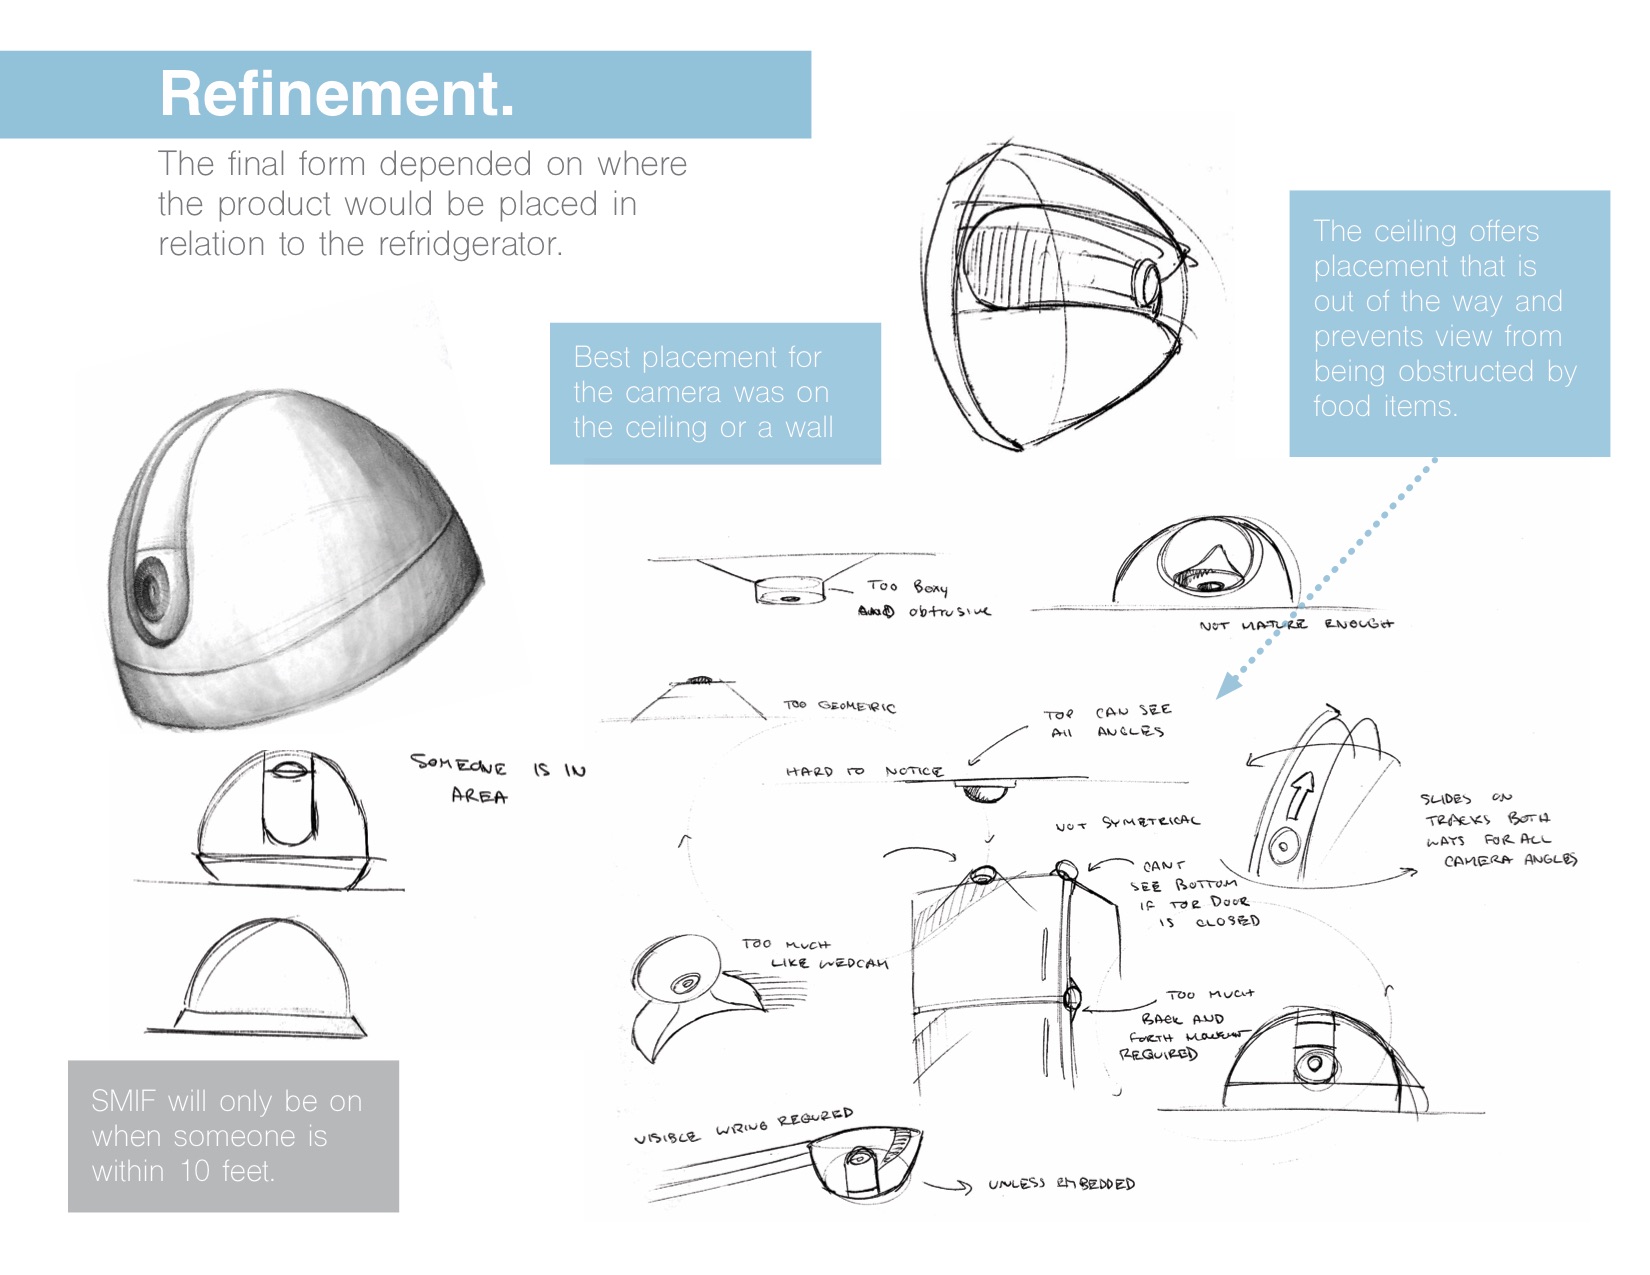 Refinement.
The final form depended on where
the product would be placed in
relation to the refridgerator.
Best placement for
the camera was on
the ceiling or a wall
The ceiling offers
placement that is
out of the way and
prevents view from
being obstructed by
food items.
TOO BOXY
AND obtrusive
NOT MATURE ENOUGH
TOO GEOMETRIC
TOP CAN SEE
All ANGLES
HARD TO NOTICE
SOMEONE IS IN
AREA
NOT SYMETRICAL
SLIDES ON
TRACKS BOTH
WAYS FOR ALL
CAMERA ANGLES
CANT
SEE BOTTOM
IF TOP DOOR
IS CLOSED
TOO MUCH
LIKE WEBCAM
TOO MUCH
BACK AND
FORTH
REQUIRED
SMIF will only be on
when someone is
within 10 feet.
VISIBLE WIRING REQURED
UNLESS EMBEDDED